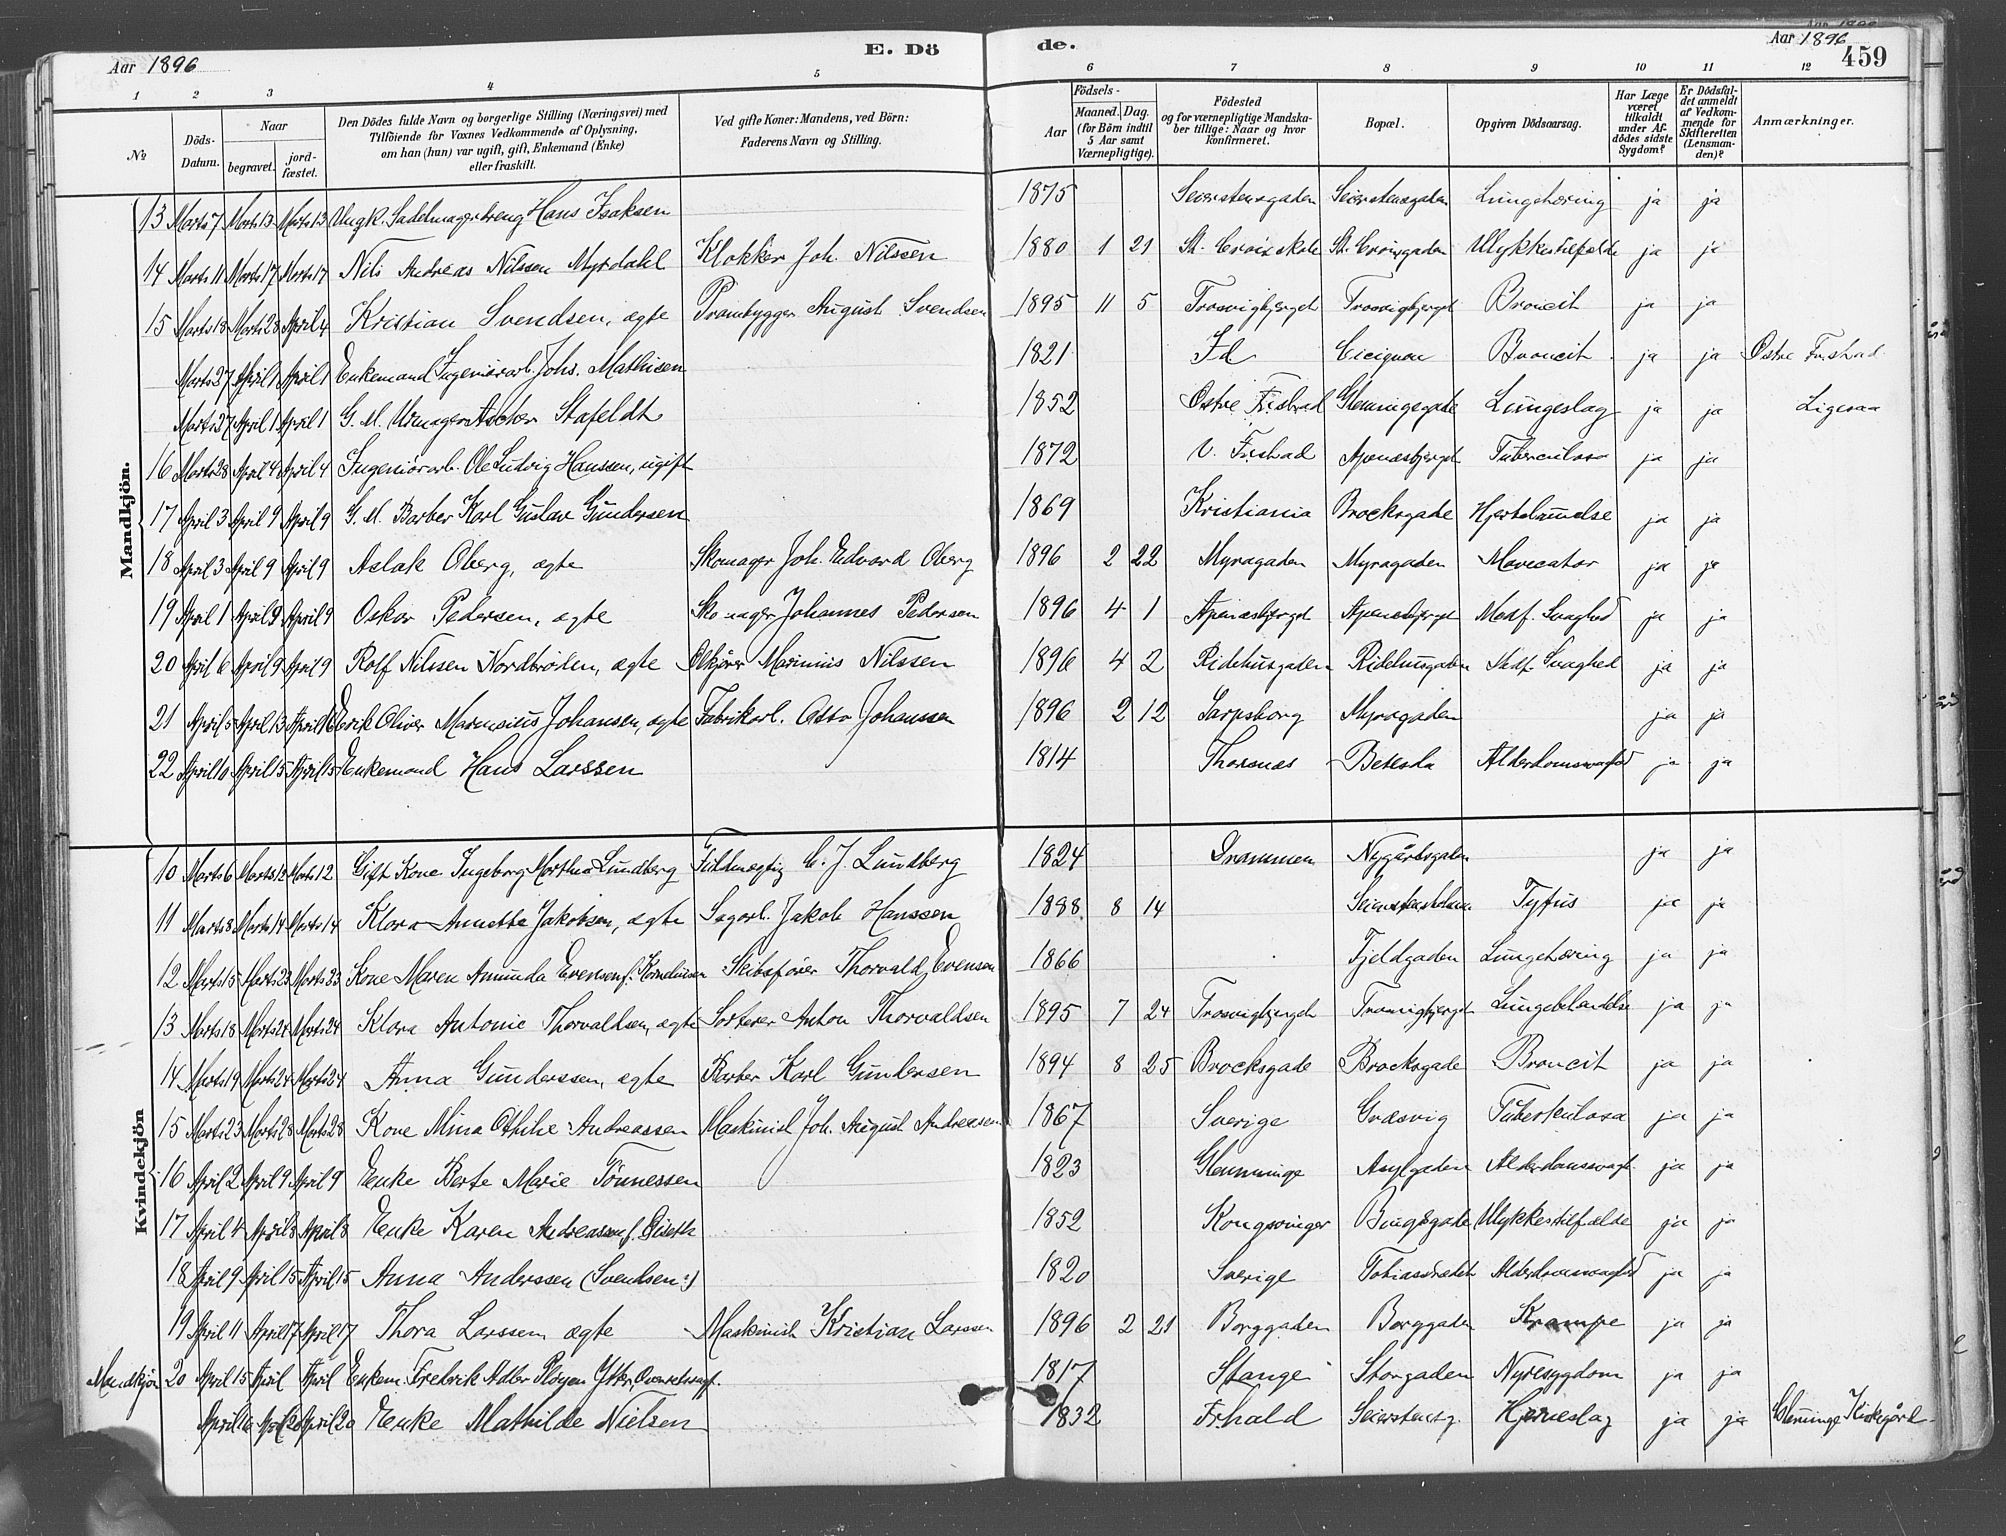 Aar 1896
E. Dö
de.
Aar 1896
459
1 2 3 4 5 6 7 8 9 10 11 12
№
Döds-Datum.
Naar
begravet.
jordfæstet.
Den Dödes fulde Navn og borgerlige Stilling (Næringsvei) med
Tilföiende for Voxnes Vedkommende af Oplysning,
om han (hun) var ugift, gift, Enkemand (Enke)
eller fraskilt.
Ved gifte Koner: Mandens, ved Börn:
Faderens Navn og Stilling.
Födsels-
Aar
Maaned. Dag.
(for Börn indtil
5 Aar samt
Værnepligtige).
Födested
og for værnepligtige Mandska-
ber tillige: Naar og hvor
konfirmeret.
Bopæl.
Opgiven Dödsaarsag.
Har Læge
været
tilkaldt
under Af-
dödes sidste
Sygdom?
Er Dödsfal-
det anmeldt
af Vedkom-
mende for
Skifteretten
(Lensman-
den)?
Anmærkninger.
Mandkjön.
13 Marts 7 Marts 13 Marts 13 Ungk. Sadelmagerdreng Hans Isaksen 1875 Seierstensgaden Seierstensgaden Lungetæring ja ja
14 Marts 11 Marts 17 Marts 17 Nils Andreas Nilssen Myrdahl Klokker Joh. Nilssen 1880 1 21 St. Croix skole St. Croixgaden Ulykkestilfælde ja ja
15 Marts 18 Marts 28 April 4 Kristian Svendsen, ægte Prambygger August Svendsen 1895 11 5 Trosvigbjerget Trosvigbjerget Broncit ja ja
Marts 27 April 1 April 1 Enkemand Ingeniörarb. Johs. Mathisen 1821 Id Cicignon Broncit ja ja Østre Fr.stad
Marts 27 April 1 April 1 G. M. Urmager Stafeldt 1852 Østre Fredrstad Glemmingegade Lungeslag ja ja Ligesaa
16 Marts 28 April 4 April 4 Ingeniörarb. Ole Ludvig Hanssen, ugift 1872 V. Fr.stad Apenæsbjerget Tuberculosa ja ja
17 April 3 April 9 April 9 G. M. Barber Karl Gustav Gundersen 1869 Kristiania Brocksgade Hjertelammelse ja ja
18 April 3 April 9 April 9 Aslak Oberg, ægte Skomager Joh. Edvard Oberg 1896 2 22 Myragaden Myragaden ja ja
19 April 1 April 9 April 9 Oskar Pedersen, ægte Skomager Johannes Pedersen 1896 4 1 Apenæsbjerget Apenæsbjerget Medf. Svaghed ja ja
20 April 6 April 9 April 9 Rolf Nilssen Nordbröden, ægte Ølkjører Marinius Nilssen 1896 4 2 Ridehusgaden Ridehusgaden Medf. Svaghed ja ja
21 April 5 April 13 April 16 Erik Oliver Johansen, ægte Fabrikarb. Otto Johanssen 1896 2 12 Sarpsborg Myragaden ja ja
22 April 10 April 15 April 15 Enkemand Hans Larssen 1814 Thorsnæs Betesda Alderdomssvaghed ja ja
Kvindekjön
10 Marts 6 Marts 12 Marts 12 Gift Kone Ingeborg Marthea Lundberg Fuldmægtig C. J. Lundberg 1824 Drammen Nygårdsgaden ja ja
11 Marts 8 Marts 14 Marts 14 Klara Annette Jakobsen, ægte Sagarb. Jakob Hanssen 1888 8 14 Tyfus ja ja
12 Marts 15 Marts 23 Marts 23 Kone Maren Amunda Evensen f. Korneliusen Skibsfører Thorvald Evensen 1866 Fjeldgaden Lungetæring ja ja
13 Marts 18 Marts 24 Marts 24 Klara Antonie Thorvaldsen, ægte Sorterer Anton Thorvaldsen 1895 7 24 Trosvigbjerget Trosvigbjerget Lungebetændelse ja ja
14 Marts 19 Marts 24 Marts 24 Anna Gunderssen, ægte Barber Karl Gundersen 1894 8 25 Brocksgade Brocksgade Broncit ja ja
15 Marts 23 Marts 28 Marts 28 Kone Mina Othilie Andreassen Maskinist Joh. August Andreassen 1867 Sverige Græsvig Tuberkulosa ja ja
16 April 2 April 9 April 9 Enke Berte Marie Tönnessen 1823 Glemminge Asylgaden Alderdomssvagh. ja ja
17 April 4 April 8 April 8 Enke Karen Andreassen f. 1852 Kongsvinger Ulykkestilfælde ja ja
18 April 9 April 15 April 15 Anna Anderssen (Svendsen) 1820 Sverige Alderdomssvaghed ja ja
19 April 11 April 17 April 17 Thora Larssen ægte Maskinist Kristian Larssen 1896 2 21 Borggaden Borggaden Krampe ja ja
Mandkjön 20 April 15 April April Enkem. Fredrik Adler 1817 Stange Storgaden Nyresygdom ja ja
April 20 April 20 Enke Mathilde Nielsen 1832 Fr.hald Seierstensg. Hjerneslag ja ja Glemminge Kirkegård